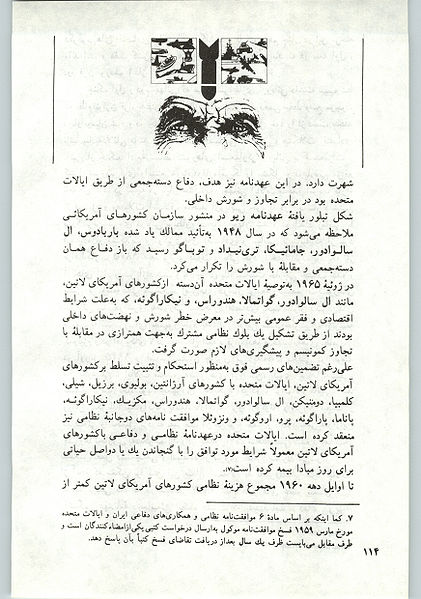 شهرت دارد. در این عهدنامه نیز هدف، دفاع دسته‌جمعی از طریق ایالات
متحده بود در برابر تجاوز و شورش داخلی.
شکل تبلور یافتهٔ عهدنامه ریو در منشور سازمان کشورهای آمریکائی
ملاحظه می‌شود که در سال ۱۹۴۸ به‌تأئید ممالك یاد شده باربادوس، ال
سالوادور، جامائیکا، تری‌نیداد و توباگو رسید که باز دفاع همان
دسته‌جمعی و مقابلهٔ با شورش را تکرار می‌کرد.
در ژوئیهٔ ۱۹۶۵ به‌توصیهٔ ایالات متحده آن‌دسته ازکشورهای آمریکای لاتین،
مانند ال سالوادور، گواتمالا، هندوراس، و نیکاراگوئه، که به‌علت شرایط
اقتصادی و فقر عمومی بیش‌تر در معرض خطر شورش و نهضت‌های داخلی
بودند از طریق تشکیل یك بلوك نظامی مشترك به‌جهت همترازی در مقابلهٔ با
تجاوز کمونیسم و پیشگیری‌های لازم صورت گرفت.
علی‌رغم تضمین‌های رسمی فوق به‌منظور استحکام و تثبیت تسلط برکشورهای
آمریکای لاتین، ایالات متحده با کشورهای آرژانتین، بولیوی، برزیل، شیلی،
کلمبیا، دومنیکن، ال سالوادور، گواتمالا، هندوراس، مکزیك، نیکاراگوئه،
پاناما، پاراگوئه، پرو، اروگوئه، و ونزوئلا موافقت نامه‌های دوجانبهٔ نظامی نیز
منعقد کرده است. ایالات متحده درعهدنامهٔ نظامی و دفاعی باکشورهای
آمریکای لاتین معمولاً شرایط مورد توافق را با گنجاندن یك یا دواصل حیاتی
برای روز مبادا بیمه کرده است(۷).
تا اوایل دهه ۱۹۶۰ مجموع هزینهٔ نظامی کشورهای آمریکای لاتین کمتر از
۷. کما اینکه بر اساس مادهٔ ۶ موافقت‌نامه نظامی و همکاری‌های دفاعی ایران و ایالات متحده
مورخ مارس ۱۹۵۹ فسخ موافقت‌نامه موکول به‌ارسال درخواست کتبی یکی‌ازامضاءکنندگان است و
طرف مقابل می‌بایست ظرف یك سال بعداز دریافت تقاضای فسخ کتباً بآن پاسخ دهد.
۱۱۴